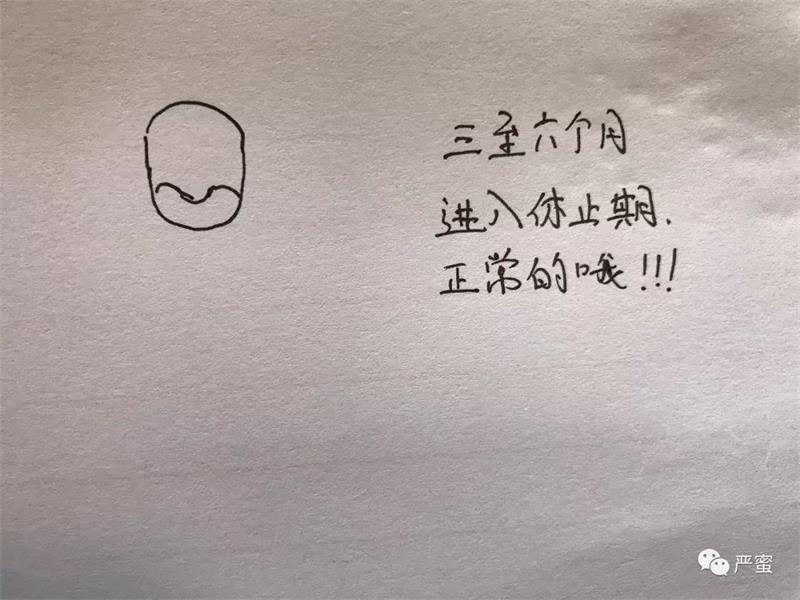 三至六个月
进入休止期.
正常的哦!!!
严蜜